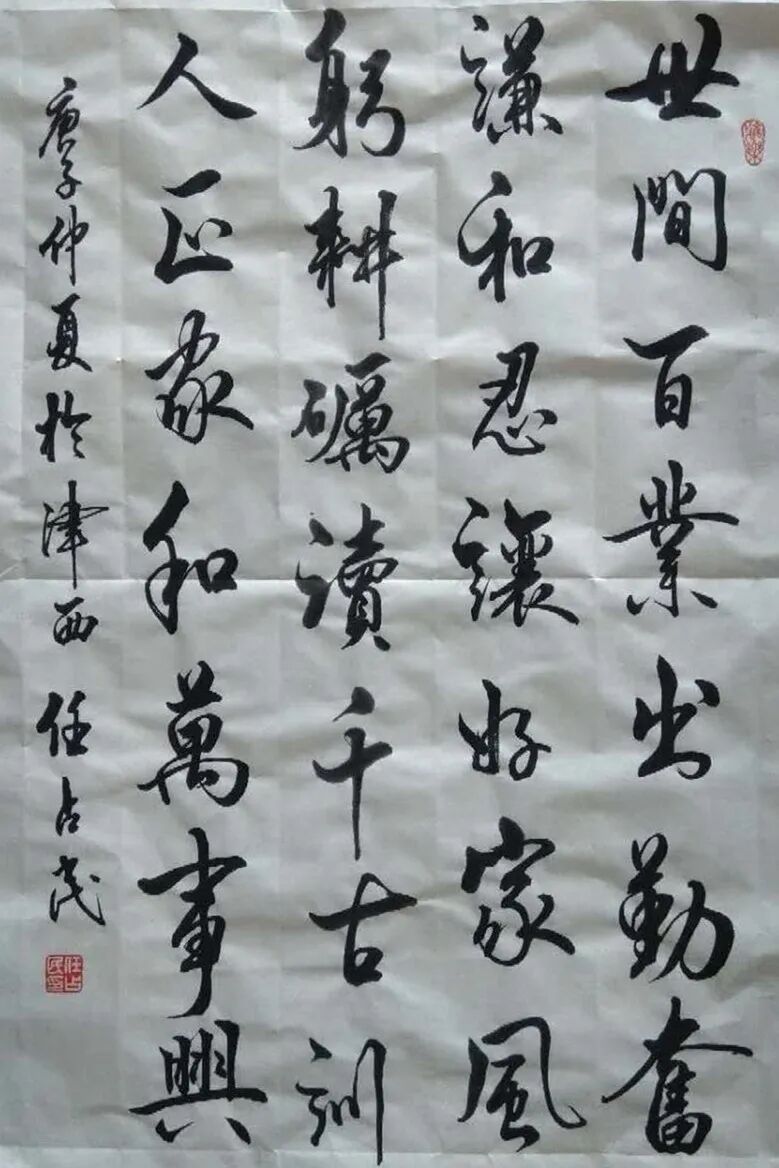 世間百業出勤奮
謙和忍讓好家風
躬耕礪讀千古訓
人正家和萬事興
庚子仲夏於津西 任占民